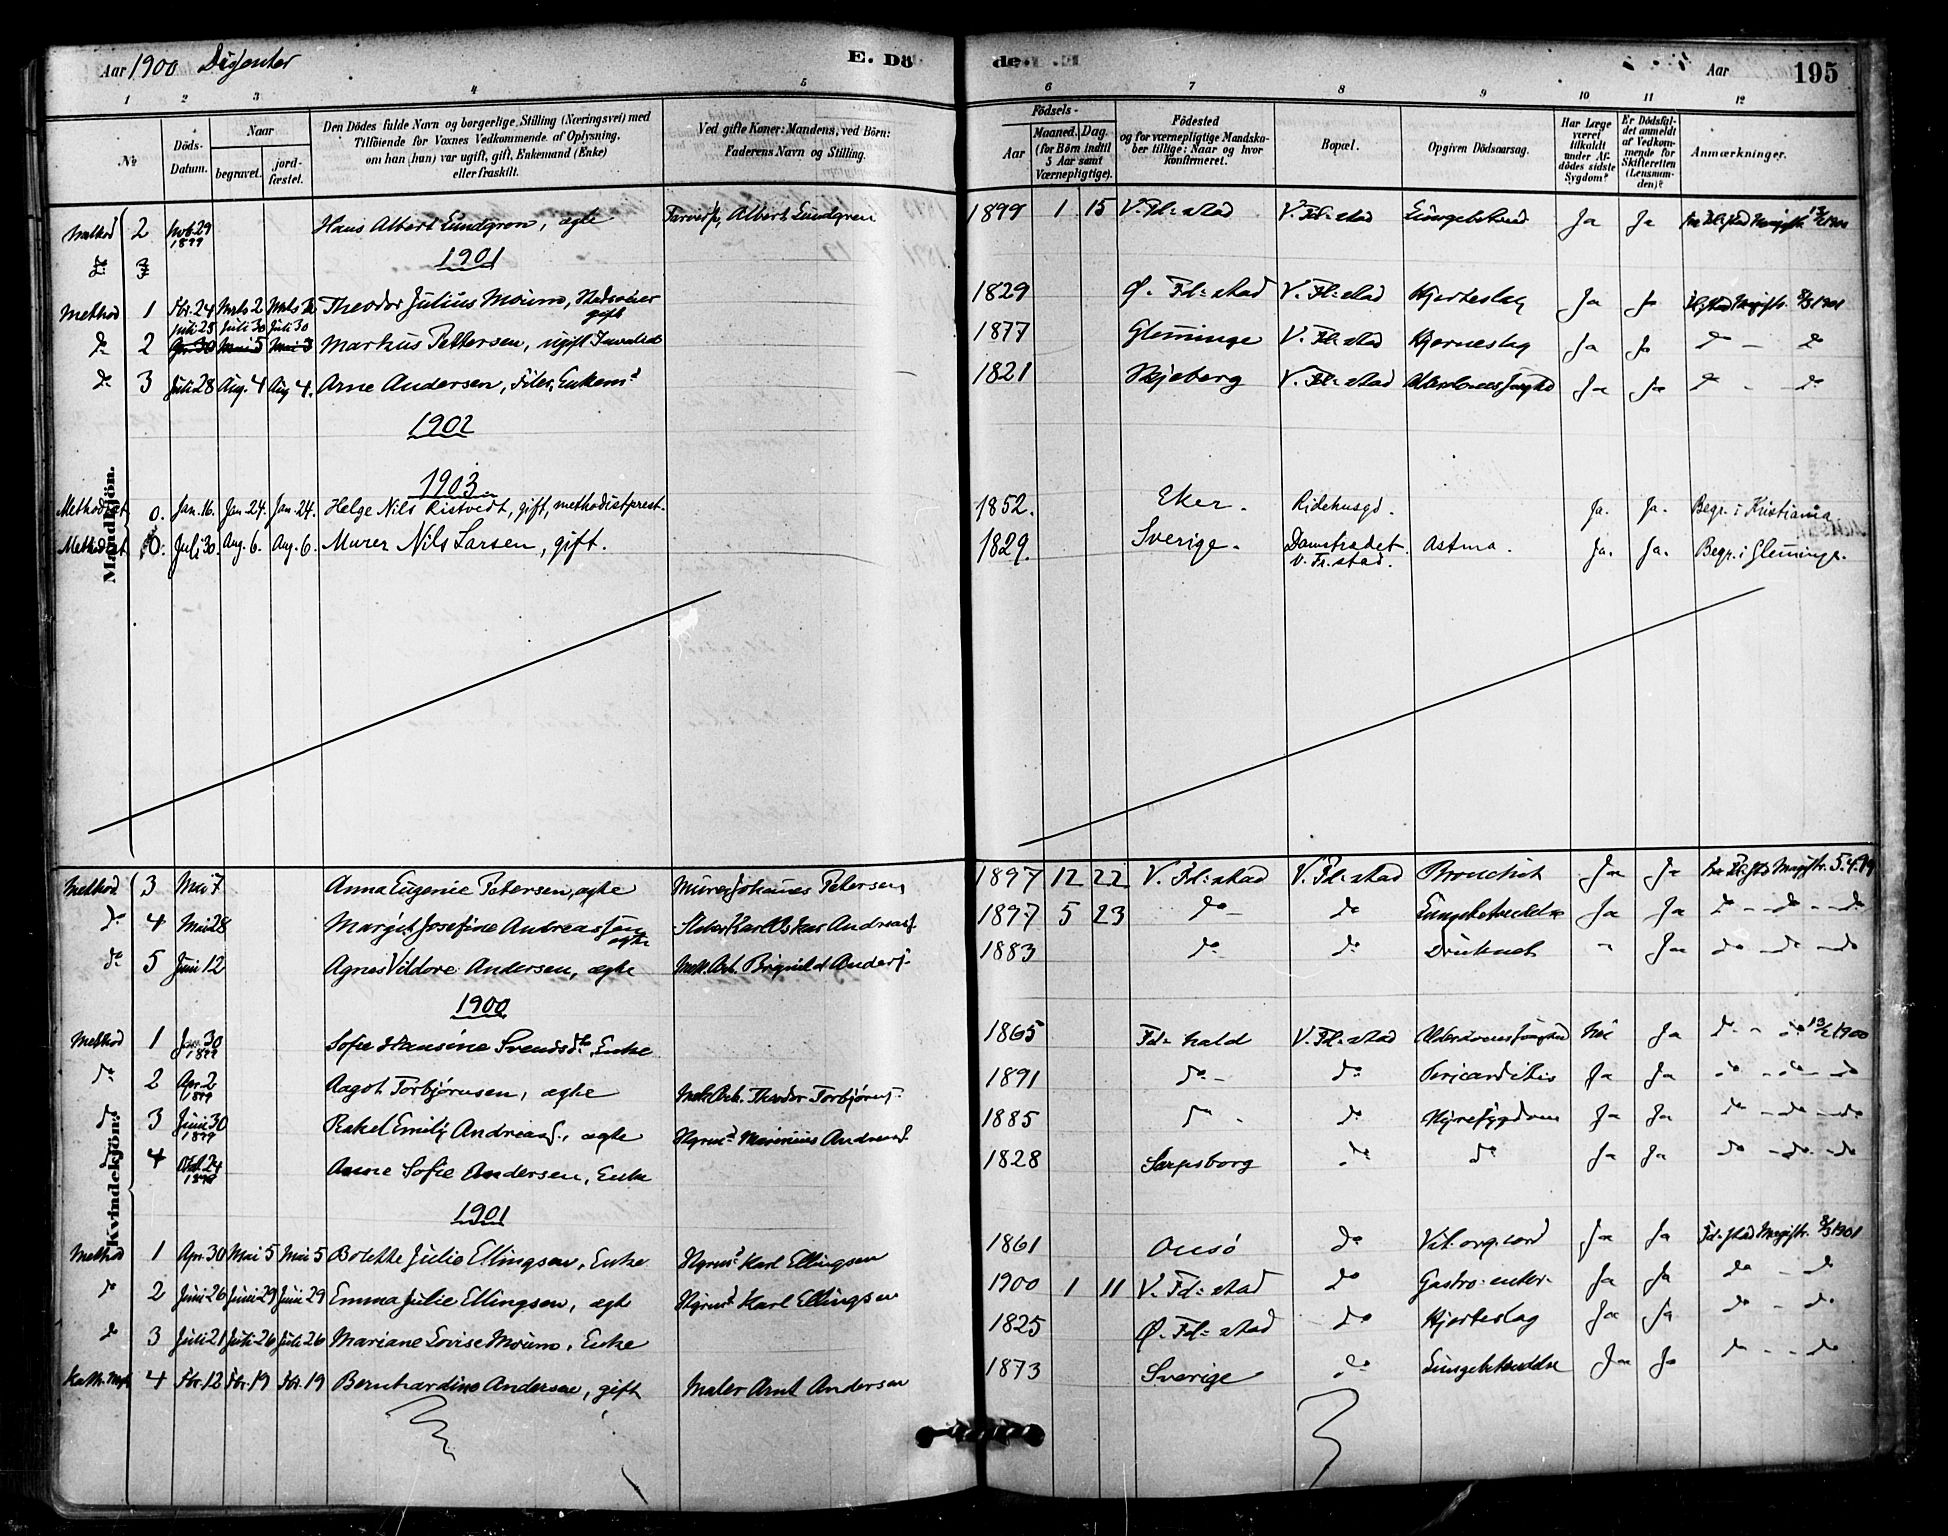 Aar 1900 Dissenter E. Dö de. Aar 195
1 2 3 4 5 6 7 8 9 10 11 12
№ Döds-Datum. Naar begravet. jord-fæstet. Den Dödes fulde Navn og borgerlige Stilling (Næringsvei) med Tilföiende for Voxnes Vedkommende af Oplysning, om han (hun) var ugift, gift, Enkemand (Enke) eller fraskilt. Ved gifte Koner: Mandens, ved Börn: Faderens Navn og Stilling. Födsels- Aar Maaned. Dag. (for Börn indtil 5 Aar samt Værnepligtige). Födested og for værnepligtige Mandskaber tillige: Naar og hvor Konfirmeret. Bopæl. Opgiven Dödsaarsag. Har Læge været tilkaldt under Afdödes sidste Sygdom? Er Dödsfaldet anmeldt af Vedkommende for Skifteretten (Lensmanden)? Anmærkninger.
Mandkjön.
Method 2 Novb 29 1899 Hans Albert Lundgren, ægte Albert Lundgren 1899 1 15 V. Fd:stad V. Fd:stad Lungebetænd Ja Ja
do 3
1901
Method 1 Fbr. 24 Mrts 2 Mrts 2 Theodor Julius Moum, gift 1829 Ø. Fd:stad V. Fd:stad Hjerteslag Ja Ja Fd:stad Magistr. 8/3 1901
do 2 Juli 28 Juli 30 Juli 30 Apr. 30 Mai 5 Mai 5 Markus Pettersen, ugift 1877 Glemminge V. Fd:stad Hjerneslag Ja Ja do - do
do 3 Juli 28 Aug. 4 Aug 4. Arne Andersen, Enkemd 1821 Skjeberg V. Fd:stad Ja Ja do - do
1902
1903
Methodist 0. Jan. 16. Jan. 24. Jan. 24. Helge Nils Ristvedt, gift, methodistprest. 1852. Eker. Ridehusgd. Ja. Ja. Begr. i Kristiania.
Methodist 0. Juli 30. Aug. 6. Aug. 6. Murer Nils Larsen, gift. 1829. Sverige. Damstredet V. Fr.stad. Astma. Ja. Ja. Begr. i Glemminge.
Kvindekjön.
Method 3 Mai 7 Anna Eugenie Petersen, ægte Murer Johannes Petersen 1897 12 22 V. Fd:stad V. Fd:stad Bronchit Ja Ja
do 4 Mai 28 Margit Josefine Andreassen ægte Karl Oskar Andreass. 1897 5 23 do do Lungebetændelse Ja Ja do - do - do
do 5 Juni 12 Agnes Valdore Andersen, ægte 1883 do do Druknet " Ja do - do - do
1900
Method 1 Jan. 30 1899 Sofie Hansine Svendsdtr Enke 1865 Fd:hald V. Fd:stad Nei Ja do - do 1900
do 2 Apr. 2 1899 Aagot Torbjørnsen, ægte Theodor Torbjørns. 1891 do do Pericarditis Ja Ja do - do - do
do 3 Juni 30 1899 Rakel Emily Andreass., ægte Styrmd Marinius Andreas. 1885 do do Nyresygdom Ja Ja do - do - do
do 4 24 Anne Sofie Andersen, Enke 1828 Sarpsborg do do Ja Ja do - do - do
1901
Method 1 Apr. 30 Mai 5 Mai 5 Bolette Julie Ellingsen, Enke Styrmd Karl Ellingsen 1861 Onsø do Vit. org. cord Ja Ja Fd:stad Magistr. 8/3 1901
do 2 Juni 26 Juni 29 Juni 29 Emma Julie Ellingsen, ægte Styrmd Karl Ellingsen 1900 1 11 V. Fd:stad do Gastro-enter. Ja Ja do - do
do 3 Juli 21 Juli 26 Juli 26 Mariane Lovise Moum, Enke 1825 Ø. Fd:stad do Hjerteslag Ja Ja do - do
4 Fbr. 12 Fbr. 19 Fbr. 19 Bernhardine Andersen, gift Maler Arnt Andersen 1873 Sverige do Lungebetændelse Ja Ja do - do